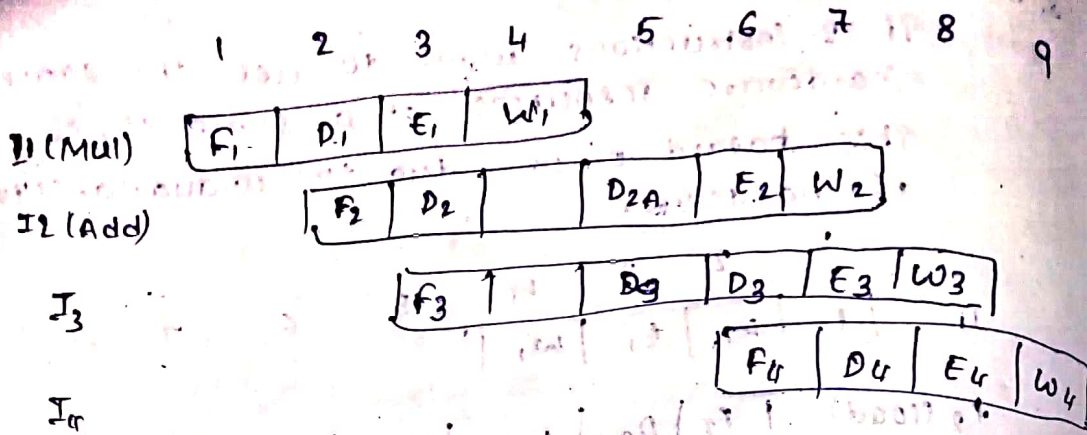 1 2 3 4 5 6 7 8 9
I1 (Mul) F₁ D₁ E₁ W₁
I2 (Add) F₂ D₂ D₂A E₂ W₂
I₃ F₃ D₃ E₃ W₃
I₄ F₄ D₄ E₄ W₄